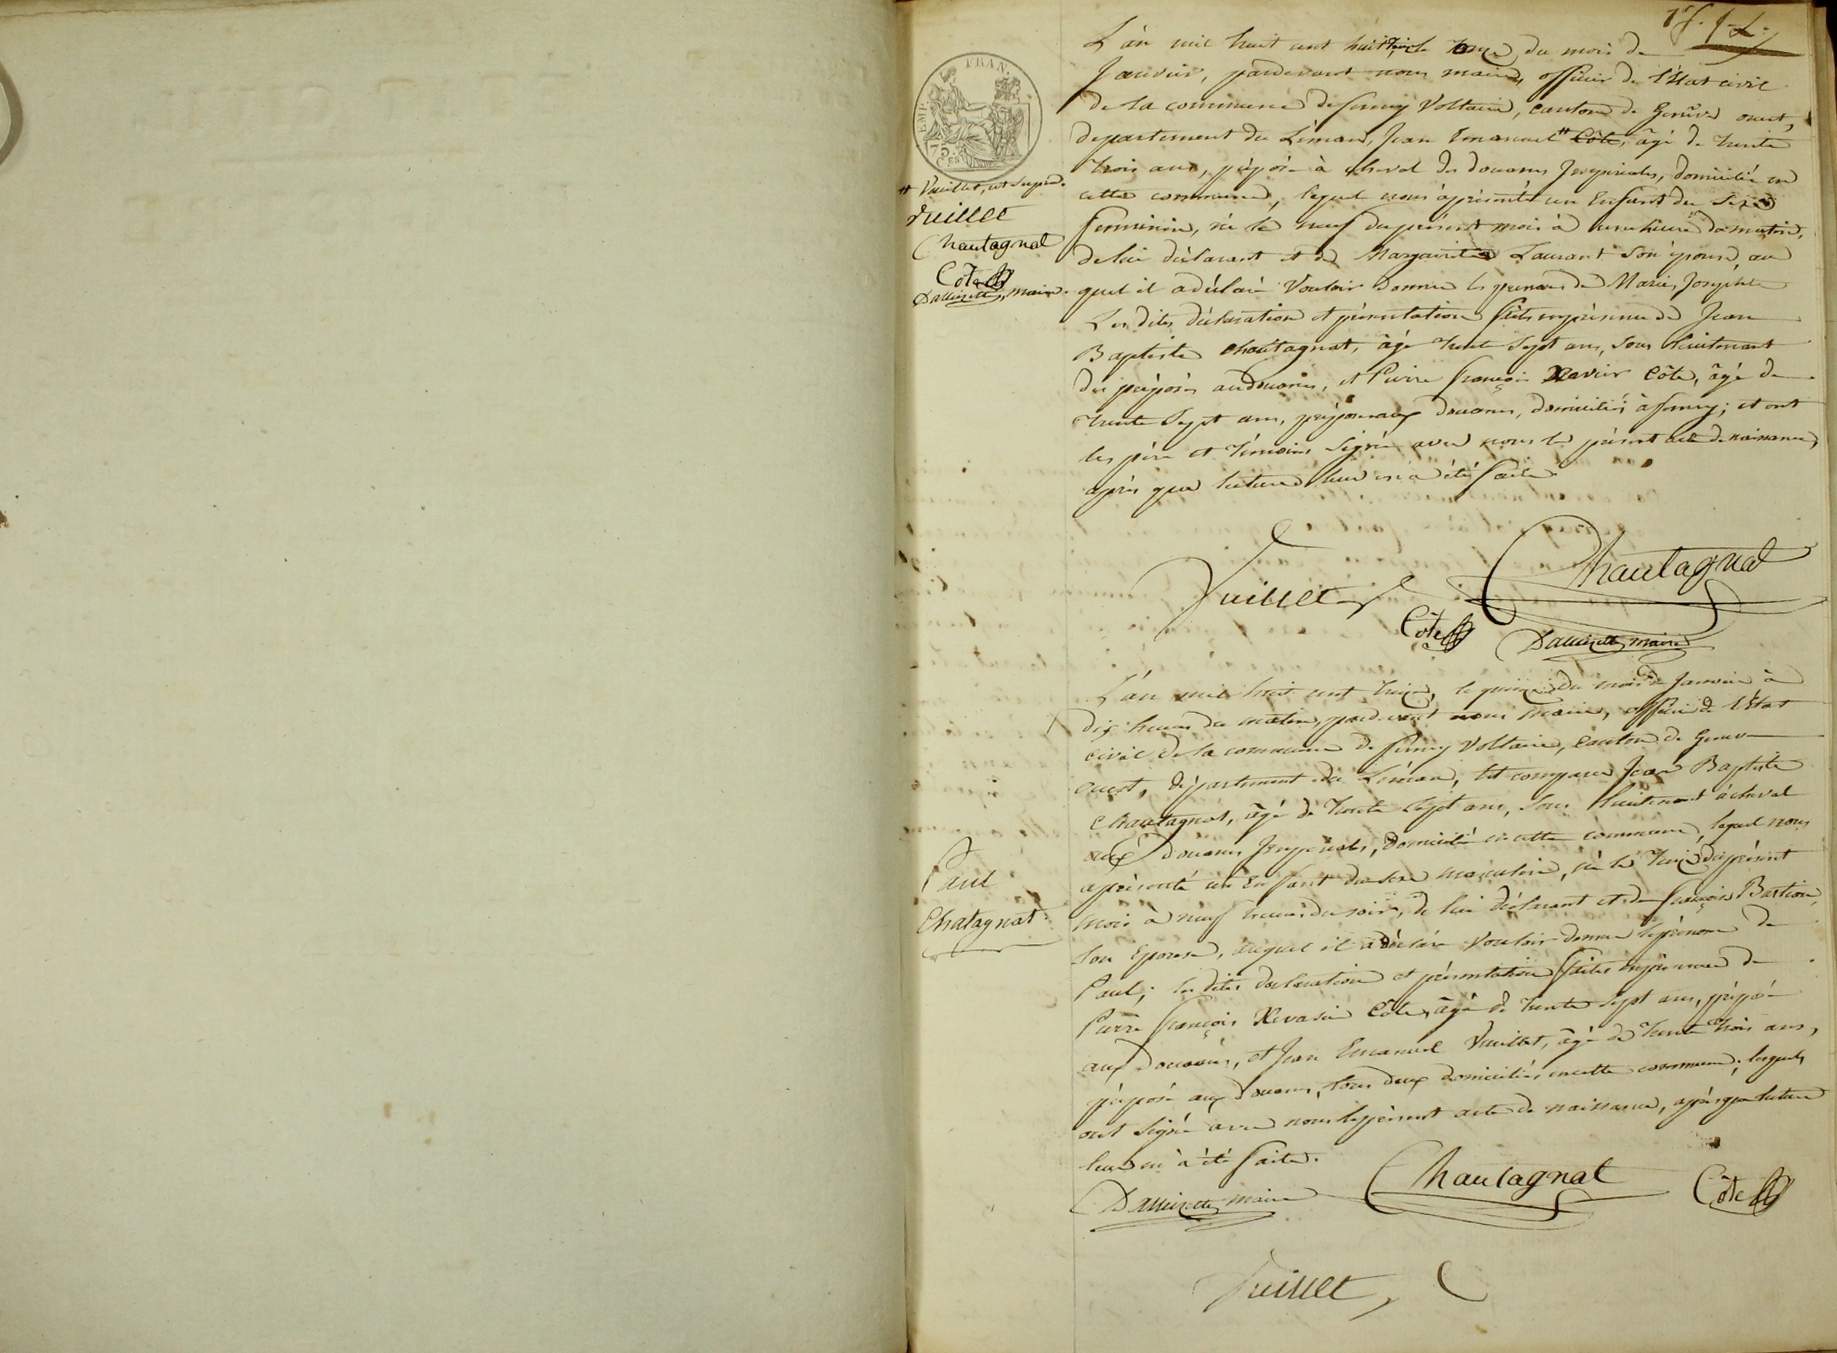 EMP. FRAN.
75
CEN.
L'an mil huit cent treize le onze du mois de
Janvier, pardevant nous maire, officier de l'Etat civil
de la commune de ferney Voltaire, canton de Genève ouest,
departement du Léman, Jean Emanuel # Côte, âgé de trente
trois ans, préposé à cheval des douanes Imperiales, domicilié en
cette commune, lequel nous a présenté un Enfant du Sexe
feminin, né le neuf du présent mois à une heure du matin,
de lui déclarant et de Margueritte Laurant Son épouse, au
quel il a déclaré Vouloir donner les prenoms de Marie Josephte
Les dites déclaration et présentation faites en présence de Jean
Baptiste Chautagnat, âgé trente Sept ans, Sous Lieutenant
des préposés aux douanes, et Pierre françois Xavier Côte, âgé de
trente Sept ans, préposé aux douanes, domiciliés à ferney; et ont
les père et témoins Signé avec nous le présent acte de naissance,
après que lecture leur en a été faite.
# Vuillet, ut supra.
Vuillet
Chautagnat
Côte
maire.
Vuillet
Chautagnat
Côte
maire
L'an mil huit cent treize, le quinze du mois de Janvier à
dix heures du matin, pardevant nous Maire, officier de l'Etat
civil de la commune de ferney Voltaire, canton de Geneve
ouest, département du Léman, est comparu Jean Baptiste
Chautagnat, âgé de trente Sept ans, Sous Lieutenant à cheval
aux douanes Imperiales, domicilié en cette commune, lequel nous
a présenté un Enfant du Sexe masculin, né le treize du présent
mois à neuf heures du soir, de lui déclarant et de françoise Bastion,
Son Epouse, auquel il a déclaré Vouloir donner le prénom de
Paul; les dites déclaration et présentation faites en présence de
Pierre françois Côte, âgé de trente Sept ans, préposé
aux Douanes, et Jean Emanuel Vuillet, âgé de trente trois ans,
préposé aux Douanes, tous deux domiciliés en cette commune; lesquels
ont Signé avec nous le présent acte de naissance, après que lecture
leur en a été faite.
Paul
Chatagnat.
maire
Chautagnat
Côte
Vuillet